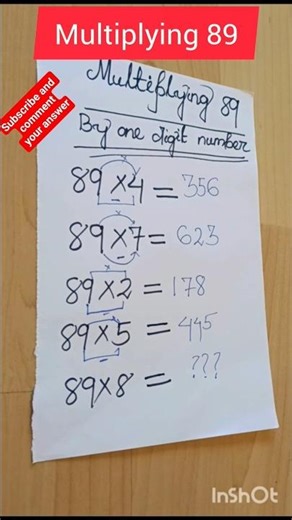 Multiplying 89
Subscribe and
comment
your answer
Multiplying 89
By one digit number
89×4=356
89×7=623
89×2=178
89×5=445
89×8= ???
InShOt